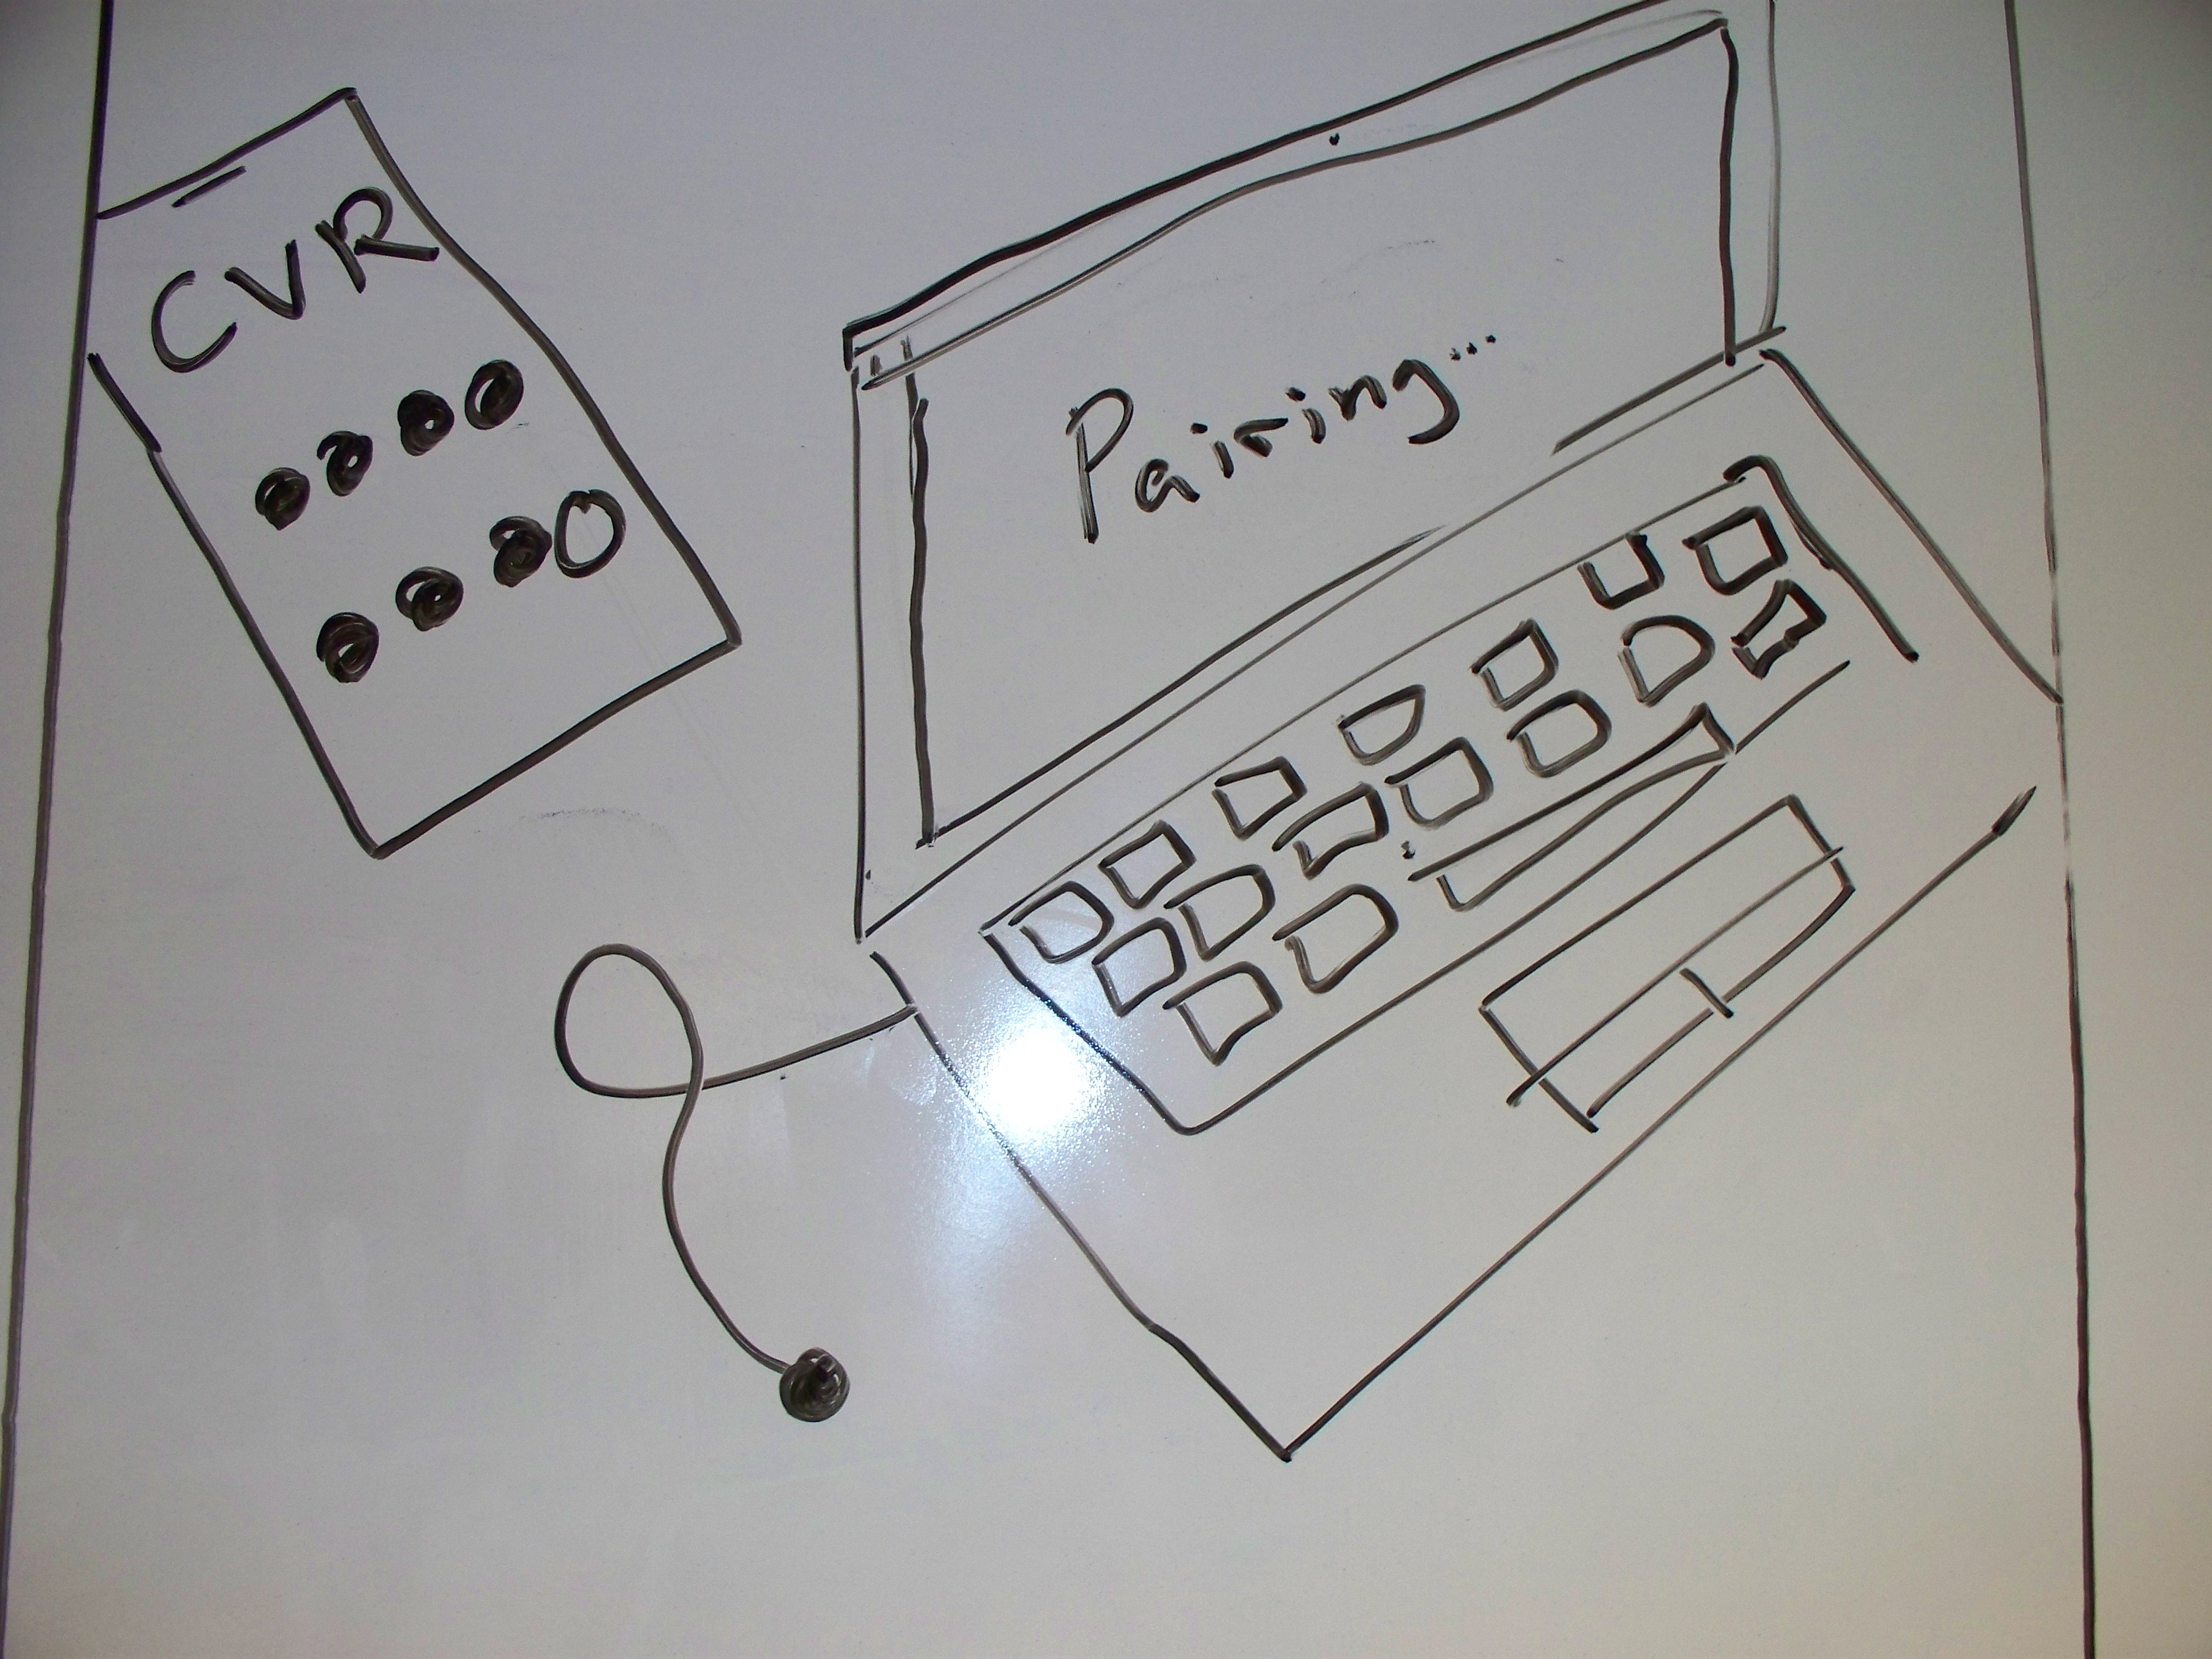 CVR
Pairing...